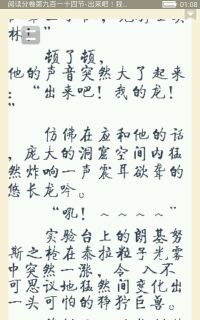 阅读分卷第九百一十四节-出来吧！我...
01:08
林："
顿了顿，
他的声音突然大了起来
："出来吧！我的龙！
"
仿佛在应和他的话
，庞大的洞窟空间内猛
然炸响一声震耳欲聋的
悠长龙吟。
"吼！~~~~"
实验台上的朗基努
斯之枪在泰拉粒子光雾
中突然一涨，令 入不
可思议地猛然间变化出
一头可怕的狰狞巨兽。